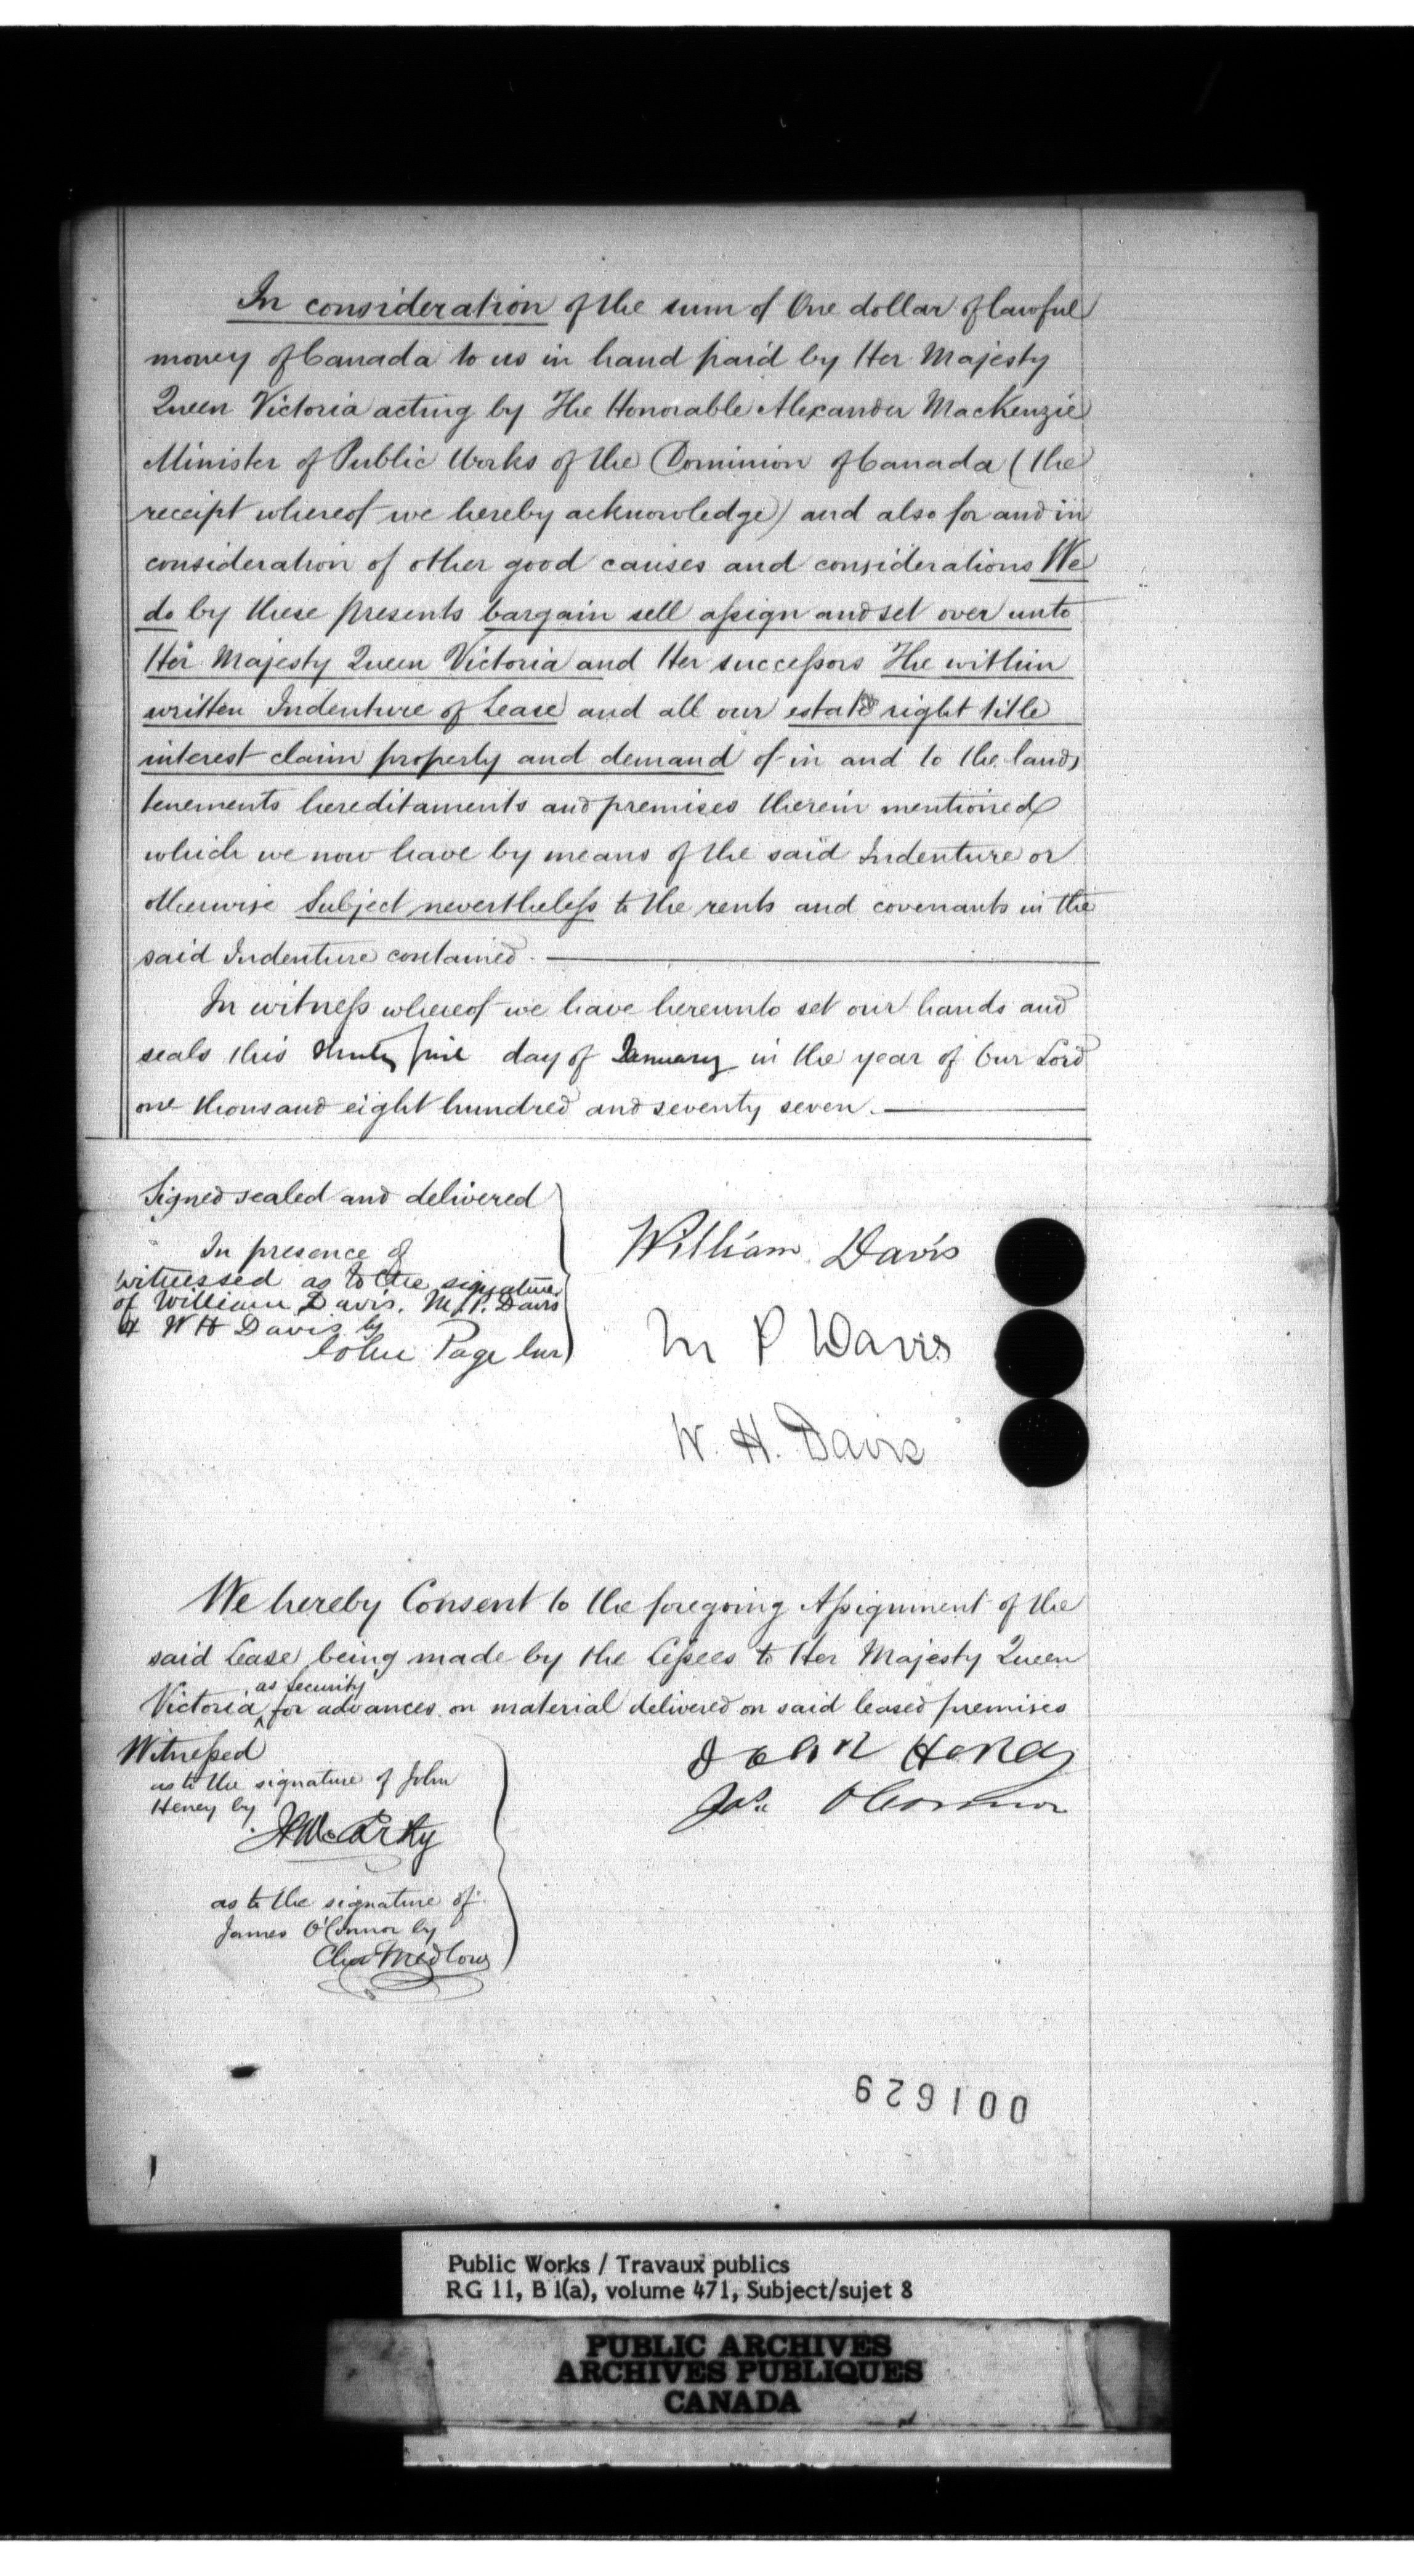 In consideration of the sum of One dollar of lawful
money of Canada to us in hand paid by Her Majesty
Queen Victoria acting by The Honorable Alexander MacKenzie
Minister of Public Works of the Dominion of Canada (the
receipt whereof we hereby acknowledge) and also for and in
consideration of other good causes and considerations We
do by these presents bargain sell assign and set over unto
Her Majesty Queen Victoria and Her successors The within
written Indenture of Lease and all our estate right title
interest claim property and demand of in and to the lands
tenements hereditaments and premises therein mentioned
which we now have by means of the said Indenture or
otherwise Subject nevertheless to the rents and covenants in the
said Indenture contained.
In witness whereof we have hereunto set our hands and
seals this thirty first day of January in the year of Our Lord
one thousand eight hundred and seventy seven.
Signed sealed and delivered
In presence of
witnessed as to the signature
of William Davis. M.P. Davis
& W H Davis by
John Page Jnr
William Davis
M P Davis
W. H. Davis
We hereby Consent to the foregoing Assignment of the
said Lease being made by the Lessees to Her Majesty Queen
Victoria as security for advances on material delivered on said leased premises
Witnessed
as to the signature of John
Heney by
John Heney
Jas. O'Connor
as to the signature of
James O'Connor by
Chas Medlow
001629
Public Works / Travaux publics
RG 11, B 1(a), volume 471, Subject/sujet 8
PUBLIC ARCHIVES
ARCHIVES PUBLIQUES
CANADA